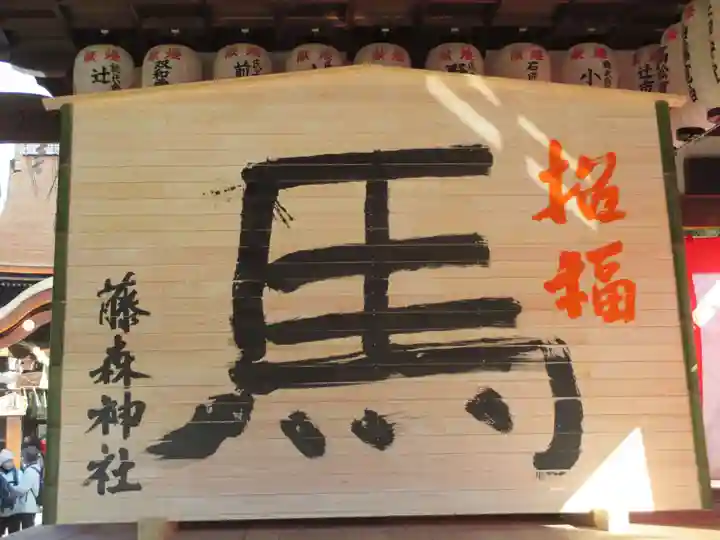 招福
馬
藤森神社
献燈
辻
献燈
献燈
前
献燈
献燈
献燈
献燈
石田
献燈
小
辻市